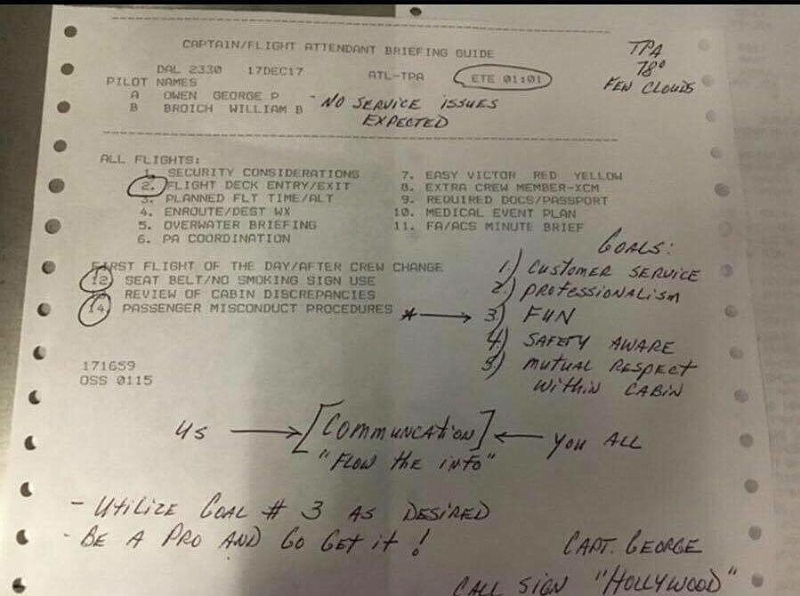 CAPTAIN/FLIGHT ATTENDANT BRIEFING GUIDE
TPA
78°
FEW CLOUDS
DAL 2330 17DEC17 ATL-TPA ETE 01:01
PILOT NAMES
A OWEN GEORGE P
B BROICH WILLIAM B
- NO SERVICE ISSUES
EXPECTED
ALL FLIGHTS:
1. SECURITY CONSIDERATIONS
2. FLIGHT DECK ENTRY/EXIT
3. PLANNED FLT TIME/ALT
4. ENROUTE/DEST WX
5. OVERWATER BRIEFING
6. PA COORDINATION
7. EASY VICTOR RED YELLOW
8. EXTRA CREW MEMBER-XCM
9. REQUIRED DOCS/PASSPORT
10. MEDICAL EVENT PLAN
11. FA/ACS MINUTE BRIEF
FIRST FLIGHT OF THE DAY/AFTER CREW CHANGE
12. SEAT BELT/NO SMOKING SIGN USE
REVIEW OF CABIN DISCREPANCIES
14. PASSENGER MISCONDUCT PROCEDURES
GOALS:
1) CUSTOMER SERVICE
2) PROFESSIONALISM
* → 3) FUN
4) SAFETY AWARE
5) MUTUAL RESPECT
WITHIN CABIN
171659
OSS 0115
US → [COMMUNCATION] ← YOU ALL
"FLOW THE INFO"
- UTILIZE GOAL # 3 AS DESIRED
- BE A PRO AND GO GET IT!
CAPT. GEORGE
CALL SIGN "HOLLYWOOD"